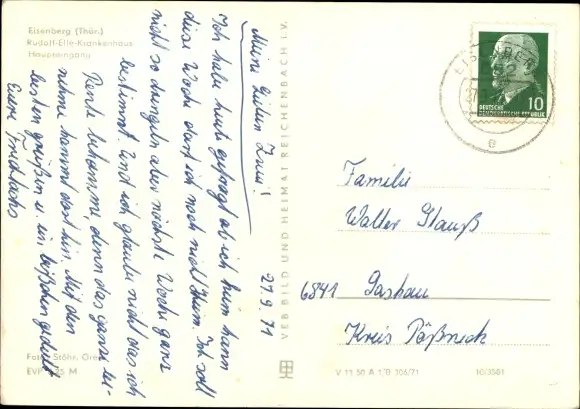 Eisenberg (Thür.)
Rudolf-Elle-Krankenhaus
Haupteingang
27.9.71
Meine Lieben Zwei!
Ich habe heute gefragt ob ich heim kann
diese Woche darf ich noch nicht heim. Ich soll
nicht so drängeln aber nächste Woche ganz
bestimmt. Und ich glaube nicht das ich
Rente bekomme, denn das ganze
nehme kommt dort hin. Mit den
besten Grüßen u. ein bißchen Geduld
Eure
Foto: Stöhr,
EVP M
VEB BILD UND HEIMAT REICHENBACH I. V.
DEUTSCHE
DEMOKRATISCHE REPUBLIK
10
Familie
Walter Strauß
6841 Paskau
Kreis Pößneck
V 11 50 A 1/B 306/71 10/3581